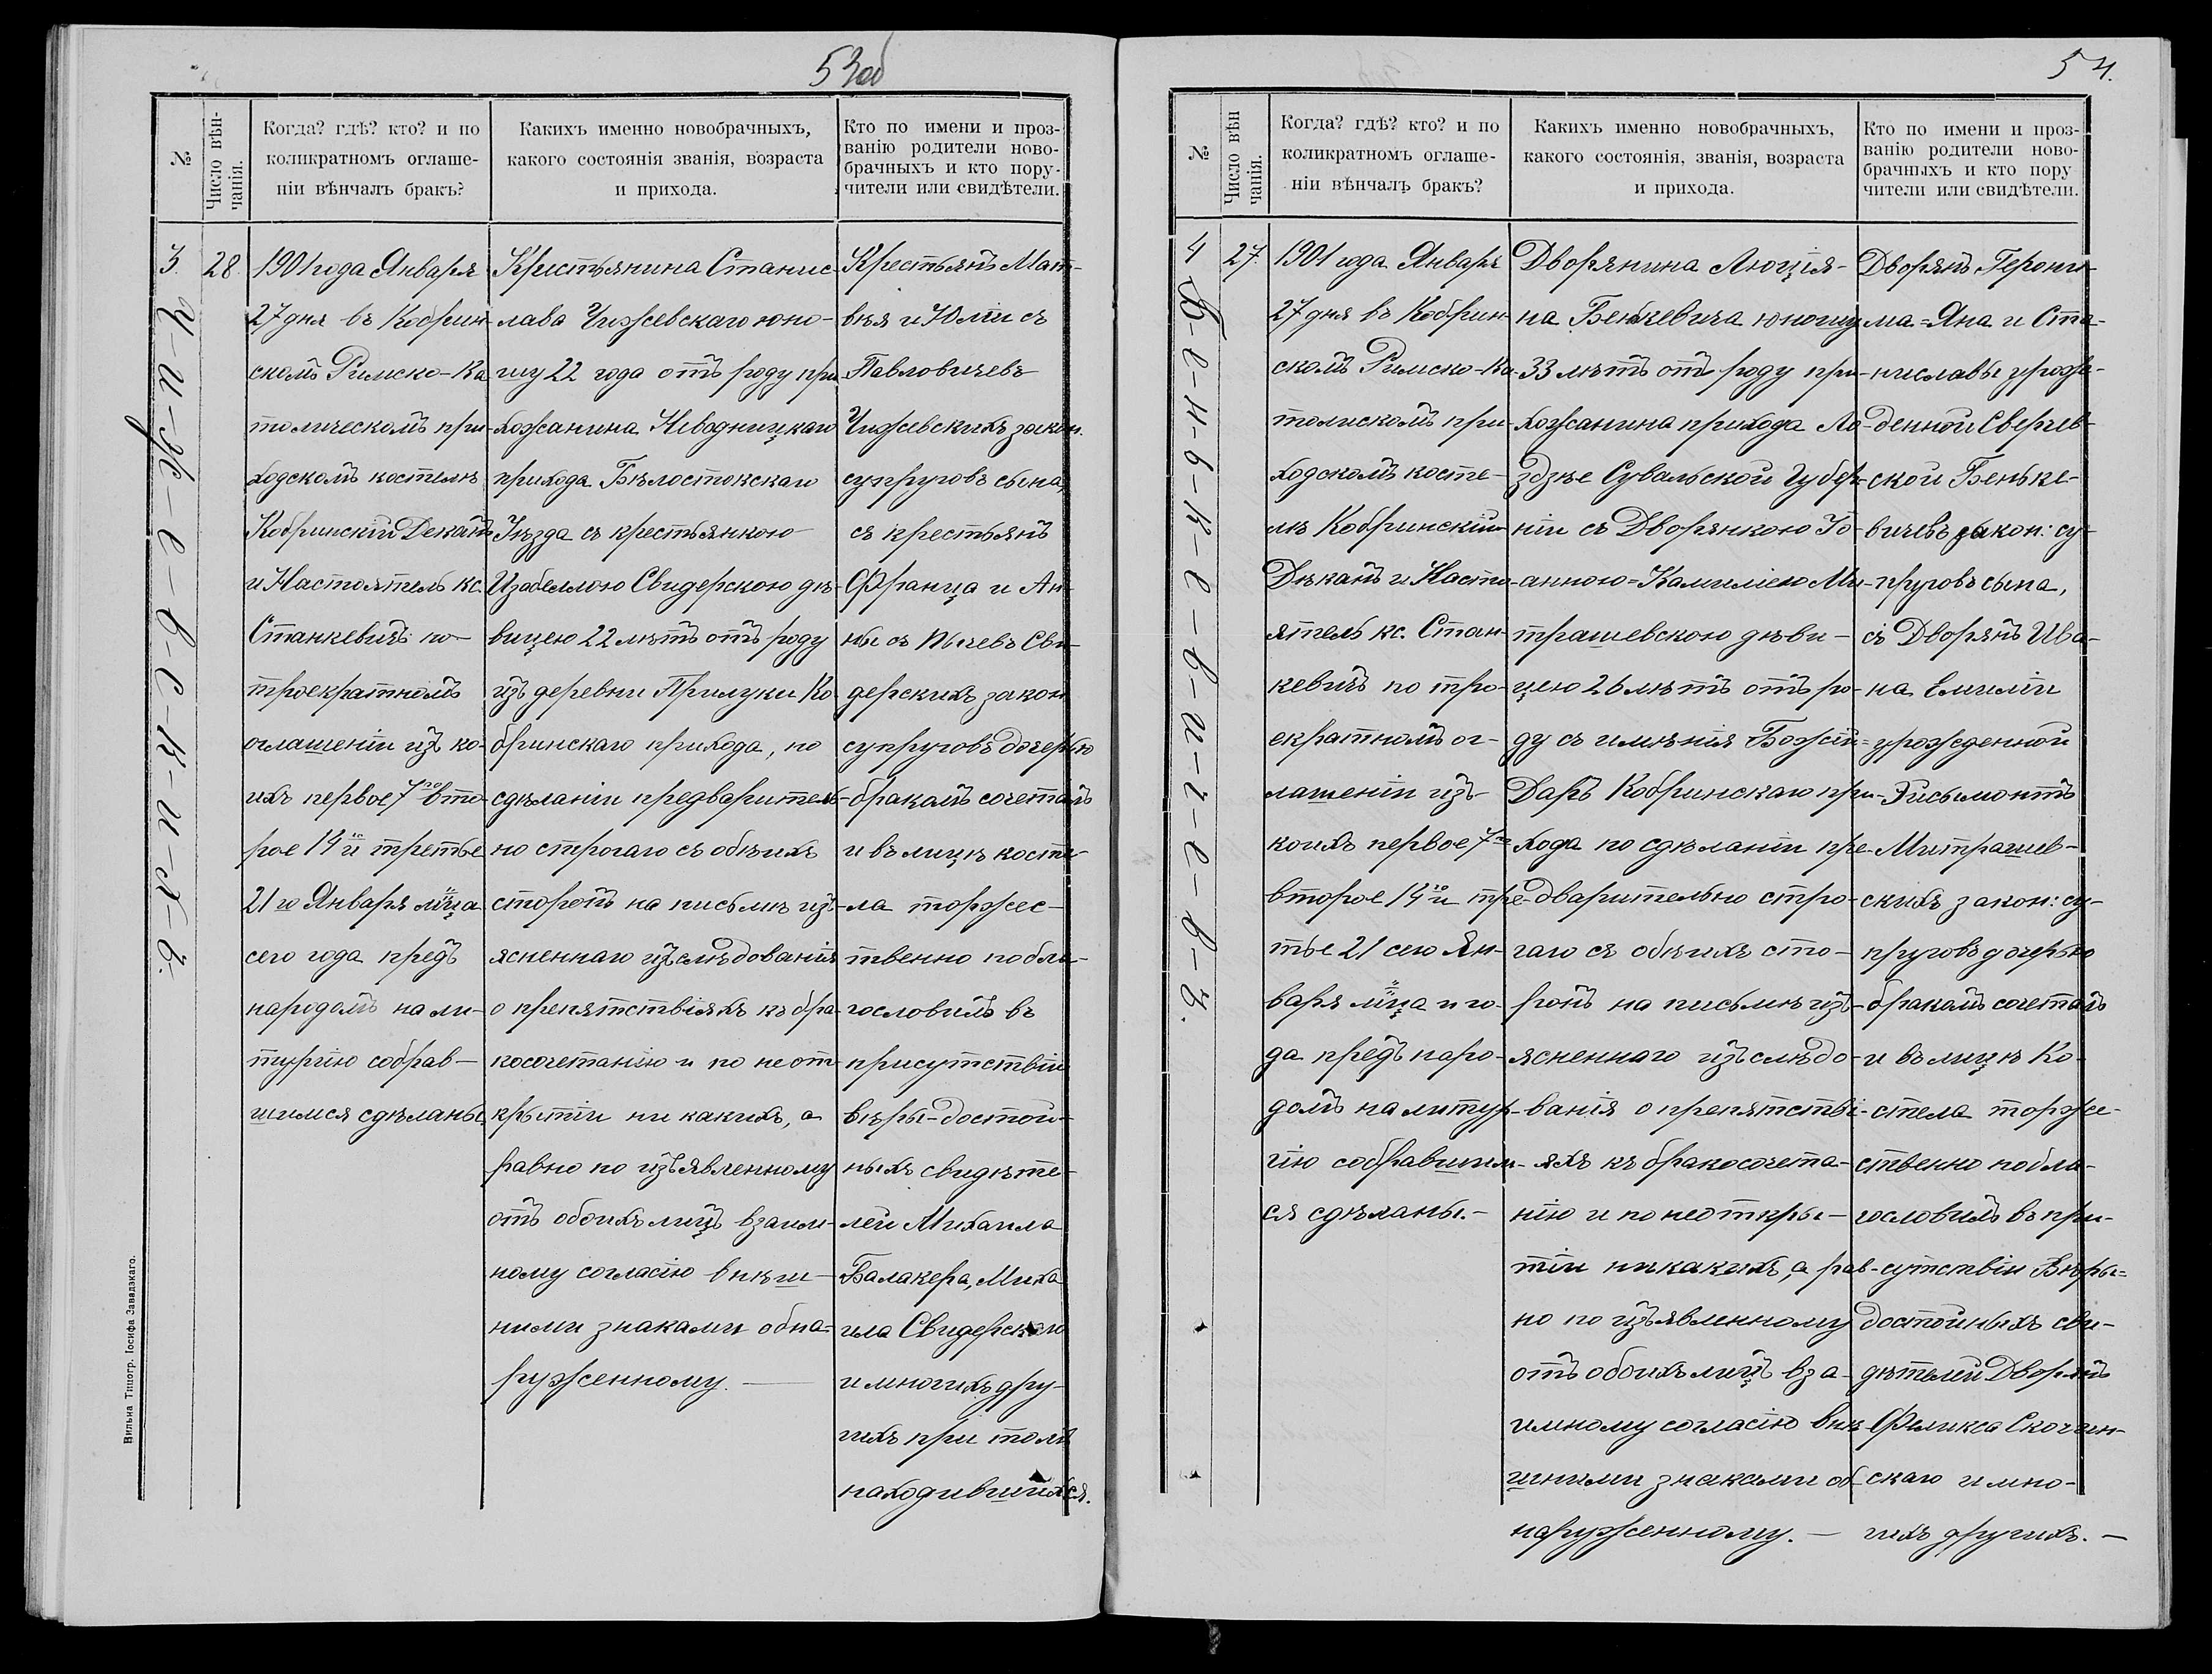 53об
№
Число вѣн-
чанія.
Когда? гдѣ? кто? и по
коликратномъ оглаше-
ніи вѣнчалъ бракъ?
Какихъ именно новобрачныхъ,
какого состоянія званія, возраста
и прихода.
Кто по имени и проз-
ванію родители ново-
брачныхъ и кто пору-
чители или свидѣтели.
3.
Ч-и-ж-е-в-с-к-и-х-ъ.
28.
1901 года Января
27 дня въ Кобрин-
скомъ Римско-Ка
толическомъ при-
ходскомъ костелѣ
Кобринскій Деканъ
и Настоятель кс.
Станкевичъ по
троекратномъ
оглашеніи изъ ко-
ихъ первое 7го вто-
рое 14 и третье
21 го Января мѣца
сего года предъ
народомъ на ли-
тургію собрав-
шимся сдѣланы,
Крестьянина Станис-
лава Чижевскаго юно-
шу 22 года отъ роду при
хожанина Неводницкаго
прихода Бѣлостокскаго
Уѣзда съ крестьянкою
Изабеллою Свидерскою дѣ-
вицею 22 лѣтъ отъ роду
изъ деревни Прилуки Ко
бринскаго прихода, по
сдѣланіи предваритель-
но строгаго съ обѣихъ
сторонъ на письмѣ изъ-
ясненнаго изъслѣдованія
о препятствіяхъ къ бра-
косочетанію и по неот-
крытіи ни какихъ, а
равно по изъявленному
отъ обоихъ лицъ взаим-
ному согласію внѣш-
ними знаками обна-
руженному. —
Крестьянъ Мат-
вѣя и Юліи съ
Павловичевъ
Чижевскихъ закон.
супруговъ сына,
съ крестьянъ
Франца и Ан-
ны съ Сви-
дерскихъ закон
супруговъ дочерью
бракомъ сочеталъ
и въ лицѣ косте-
ла торжес-
твенно побла-
гословилъ въ
присутствіи
вѣры-достой-
ныхъ свидѣте-
лей Михаила
Балакера, Миха
ила Свидерскаго
и многихъ дру-
гихъ при томъ
находившихся.
Вильна Типогр. Іосифа Завадзкаго.
54.
№
Число вѣн
чанія.
Когда? гдѣ? кто? и по
коликратномъ оглаше-
ніи вѣнчалъ бракъ?
Какихъ именно новобрачныхъ,
какого состоянія, званія, возраста
и прихода.
Кто по имени и проз-
ванію родители ново-
брачныхъ и кто пору
чители или свидѣтели.
4
Б-е-н-ь-к-е-в-и-ч-е-в-ъ.
27.
1901 года Января
27 дня въ Кобрин-
скомъ Римско-Ка-
толискомъ при-
ходскомъ косте-
лѣ Кобринскій
Деканъ и Насто-
ятель кс. Стан-
кевичъ по тро-
екратномъ ог-
лашеніи изъ
коихъ первое 7го
второе 14го и тре-
тье 21 сего Ян-
варя мѣца и го-
да предъ наро-
домъ на литур-
гію собравшим-
ся сдѣланы.—
Дворянина Люція-
на Бенькевича юношу
33 лѣтъ отъ роду при-
хожанина прихода Ло-
здзѣе Сувальской Губер-
ніи съ Дворянкою Іо-
анною=Камиліею Ми-
трашевскою дѣви-
цею 26 лѣтъ отъ ро-
ду съ имѣнія Божій=
Даръ Кобринскаго при-
хода по сдѣланіи пре-
дварительно стро-
гаго съ обѣихъ сто-
ронъ на письмѣ изъ-
ясненнаго изъслѣдо-
ванія о препятстві-
яхъ къ бракосочета-
нію и по неоткры-
тіи никакихъ, а рав-
но по изъявленному
отъ обоихъ лицъ вза-
имному согласію внѣ-
шними знаками об-
наруженному. —
Дворянъ Герони-
ма=Яна и Ста-
ниславы урож-
денной Сверчев-
ской Бенькe-
вичевъ закон: су-
пруговъ сына,
съ Дворянъ Ива-
на Емиліи
урожденной
Эйсымонтъ
Митрашев-
скихъ закон: су-
пруговъ дочерью
бракомъ сочеталъ
и въ лицѣ Ко-
стела торже-
ственно побла-
гословилъ въ при-
сутствіи Вѣры=
достойныхъ сви-
дѣтелей Дворянъ
Феликса
скаго и мно-
гихъ другихъ.—